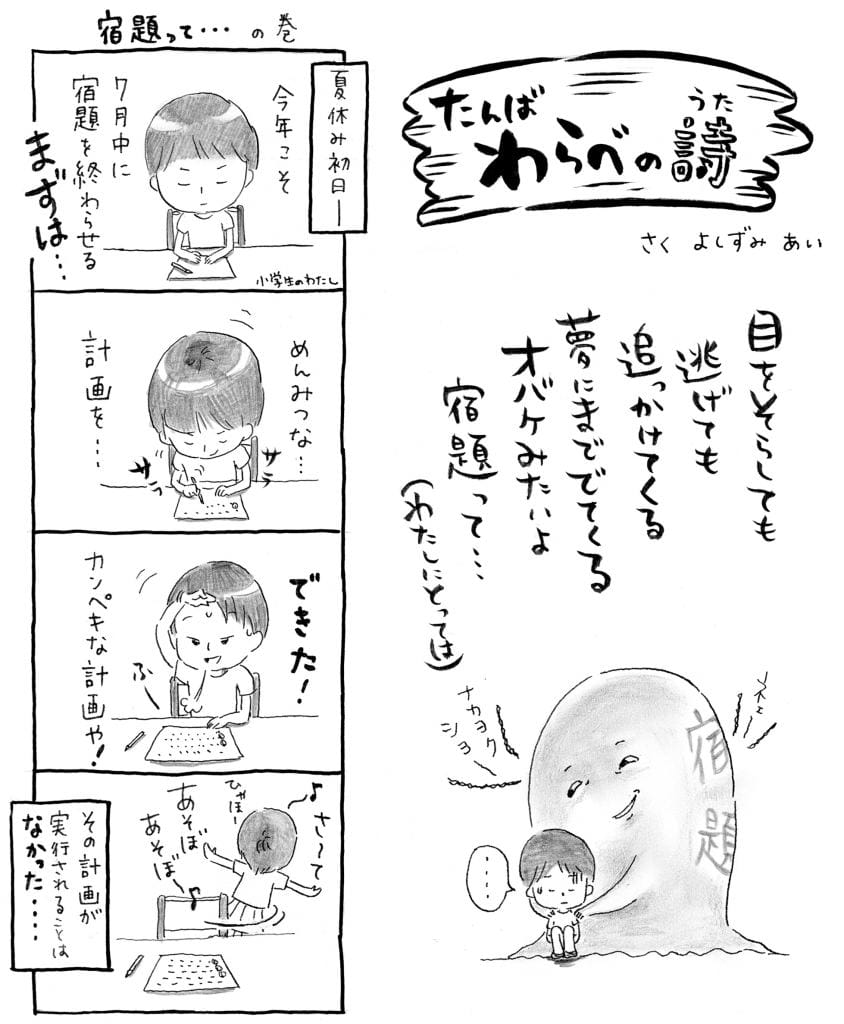 たんば
わらべの詩
うた
さく よしずみ あい
目をそらしても
逃げても
追っかけてくる
夢にまででてくる
オバケみたいよ
宿題って…
(わたしにとっては)
ネェ
ナカヨク
シヨ
宿題
……
宿題って… の巻
夏休み初日―
今年こそ
7月中に
宿題を終わらせる
まずは…
小学生のわたし
めんみつな…
計画を…
サラ
サラ
できた!
ふぅ
カンペキな計画や!
♪さ〜て
ひゃほー
あそぼ
あそぼ♪
その計画が
実行されることは
なかった....